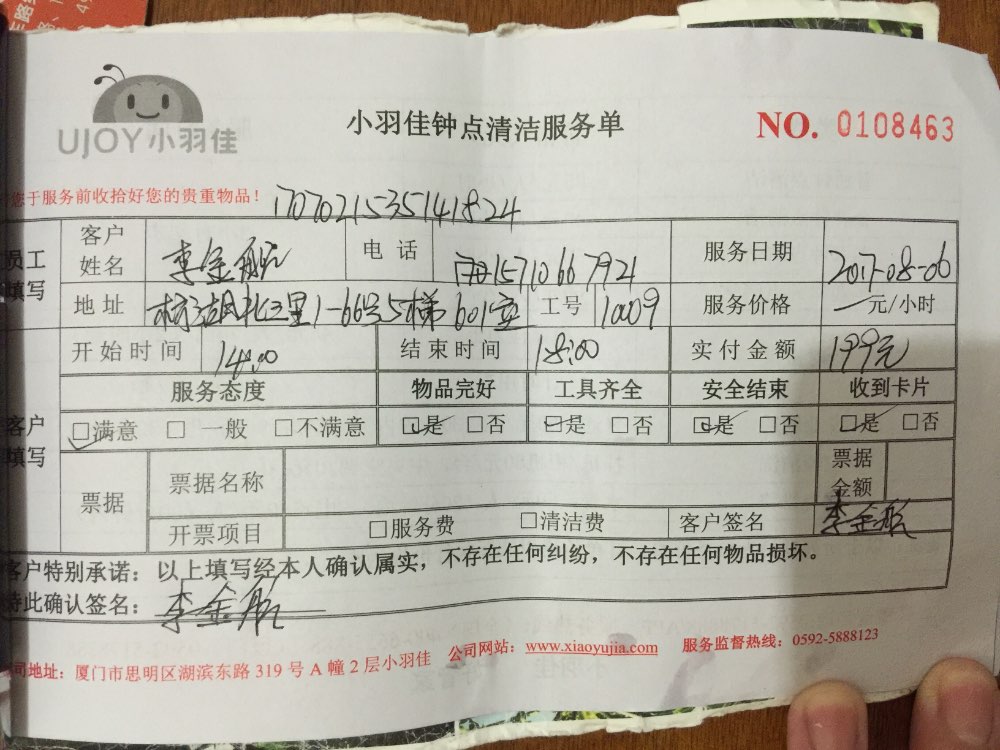 UJOY小羽佳
小羽佳钟点清洁服务单
NO. 0108463
您于服务前收拾好您的贵重物品！
1707021535141824
员工
填写
客户
姓名
李金航
电 话
15710667921
服务日期
2017-08-06
地 址
北二里1-66号5梯601室
工号
服务价格
一元/小时
开始时间
14:00
结束时间
18:00
实付金额
199元
服务态度
物品完好
工具齐全
安全结束
收到卡片
客户
填写
□满意 □ 一般 □不满意
□是 □否
□是 □否
□是 □否
□是 □否
票据
票据名称
票据
金额
开票项目
□服务费
□清洁费
客户签名
李金航
客户特别承诺：以上填写经本人确认属实，不存在任何纠纷，不存在任何物品损坏。
特此确认签名：
李金航
公司地址：厦门市思明区湖滨东路 319 号 A 幢 2 层小羽佳
公司网站：www.xiaoyujia.com
服务监督热线：0592-5888123